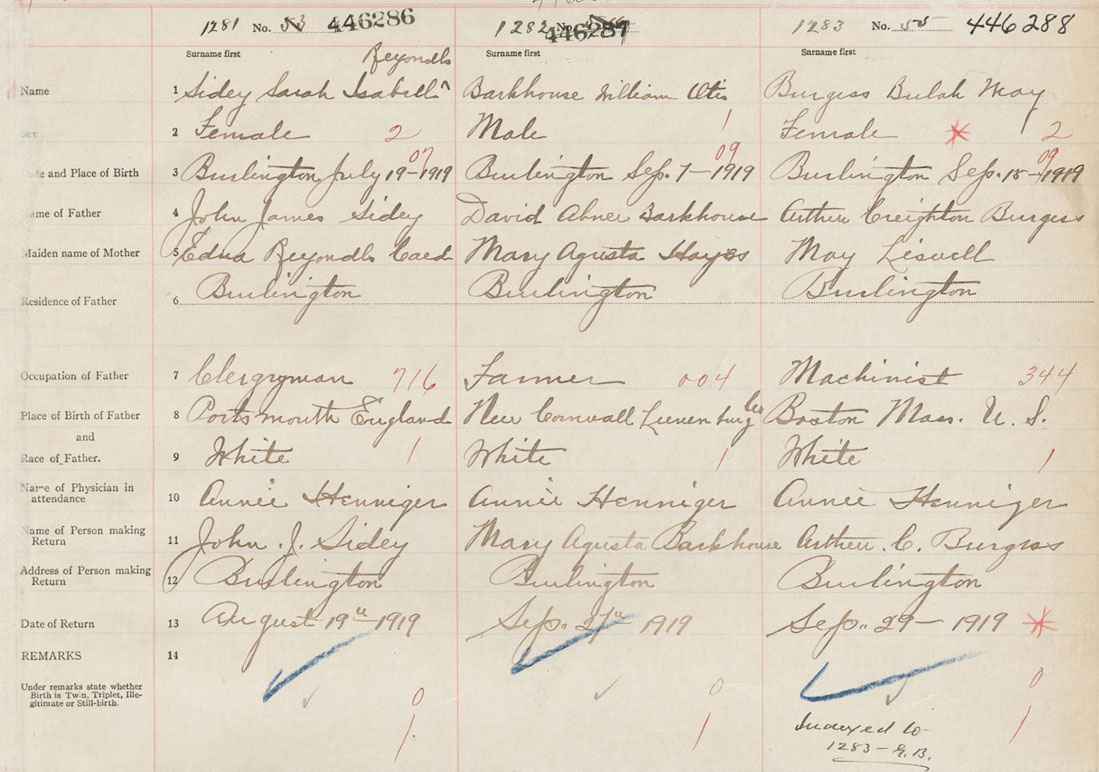 1281 No. 53 446286 1282 No. 446287 1283 No. 55 446288
Surname first Surname first Surname first
Reyondls
Name 1 Sidey Sarah Isabell ^ Barkhouse William Otis Burgess Bulah May
Sex 2 Female 2 Male 1 Female * 2
07 09 09
Date and Place of Birth 3 Burlington July 19-1919 Burlington Sep. 7-1919 Burlington Sep. 18-1919
Name of Father 4 John James Sidey David Abner Barkhouse Arthur Creighton Burgess
Maiden name of Mother 5 Edna Reyondls Caed Mary Agusta Hayes May Lisvell
Residence of Father 6 Burlington Burlington Burlington
Occupation of Father 7 Clergryman 716 Farmer 004 Machinist 344
Place of Birth of Father 8 Portsmouth England New Cornwall Lunenburg Co Boston Mass. U. S.
and
Race of Father. 9 White 1 White 1 White 1
Name of Physician in
attendance 10 Annie Henniger Annie Henniger Annie Henniger
Name of Person making
Return 11 John. J. Sidey Mary Agusta Barkhouse Arthur. C. Burgess
Address of Person making
Return 12 Burlington Burlington Burlington
Date of Return 13 August 19th 1919 Sep. 27th 1919 Sep. 29-1919 *
REMARKS 14
Under remarks state whether
Birth is Twin, Triplet, Ille-
gitimate or Still-birth.
0 0 0
1 1 1
Indexed to
1283-G.B.